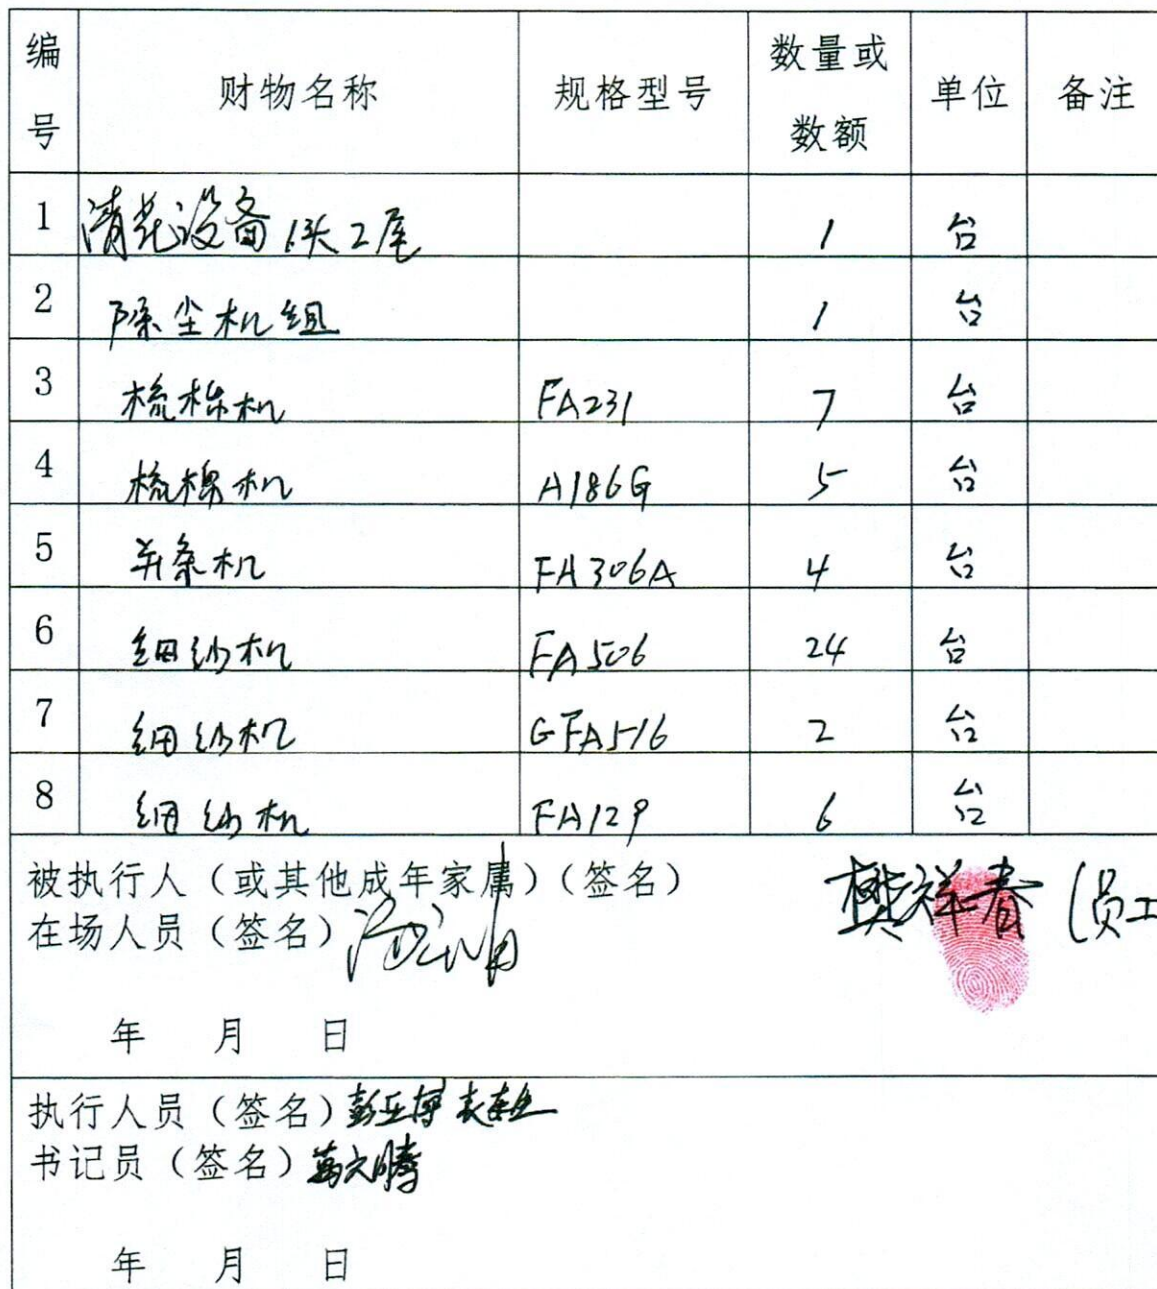 编号 财物名称 规格型号 数量或数额 单位 备注
1 清花设备1头2尾 1 台
2 除尘机组 1 台
3 梳棉机 FA231 7 台
4 梳棉机 A186G 5 台
5 并条机 FA306A 4 台
6 细纱机 FA506 24 台
7 细纱机 GFA516 2 台
8 细纱机 FA129 6 台
被执行人（或其他成年家属）（签名） 樊祥春（员工
在场人员（签名）
年 月 日
执行人员（签名）
书记员（签名）
年 月 日